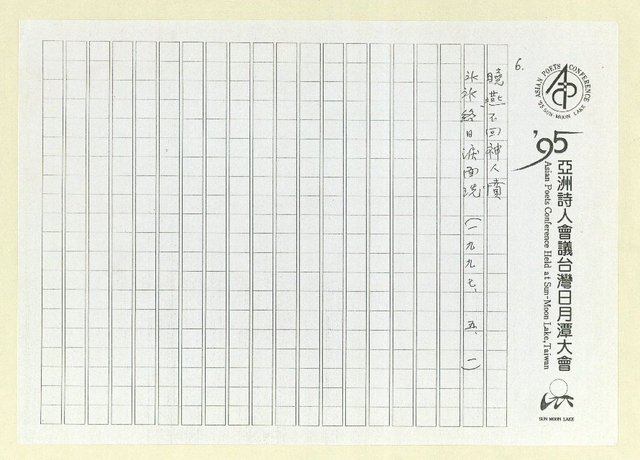 ASIAN POETS CONFERENCE
'95 SUN-MOON LAKE
'95
亞洲詩人會議台灣日月潭大會
Asian Poets Conference Held at Sun-Moon Lake, Taiwan
SUN MOON LAKE
6.
曉燕不回神人憤
冰冰終日淚面洗(一九九七、五、一)